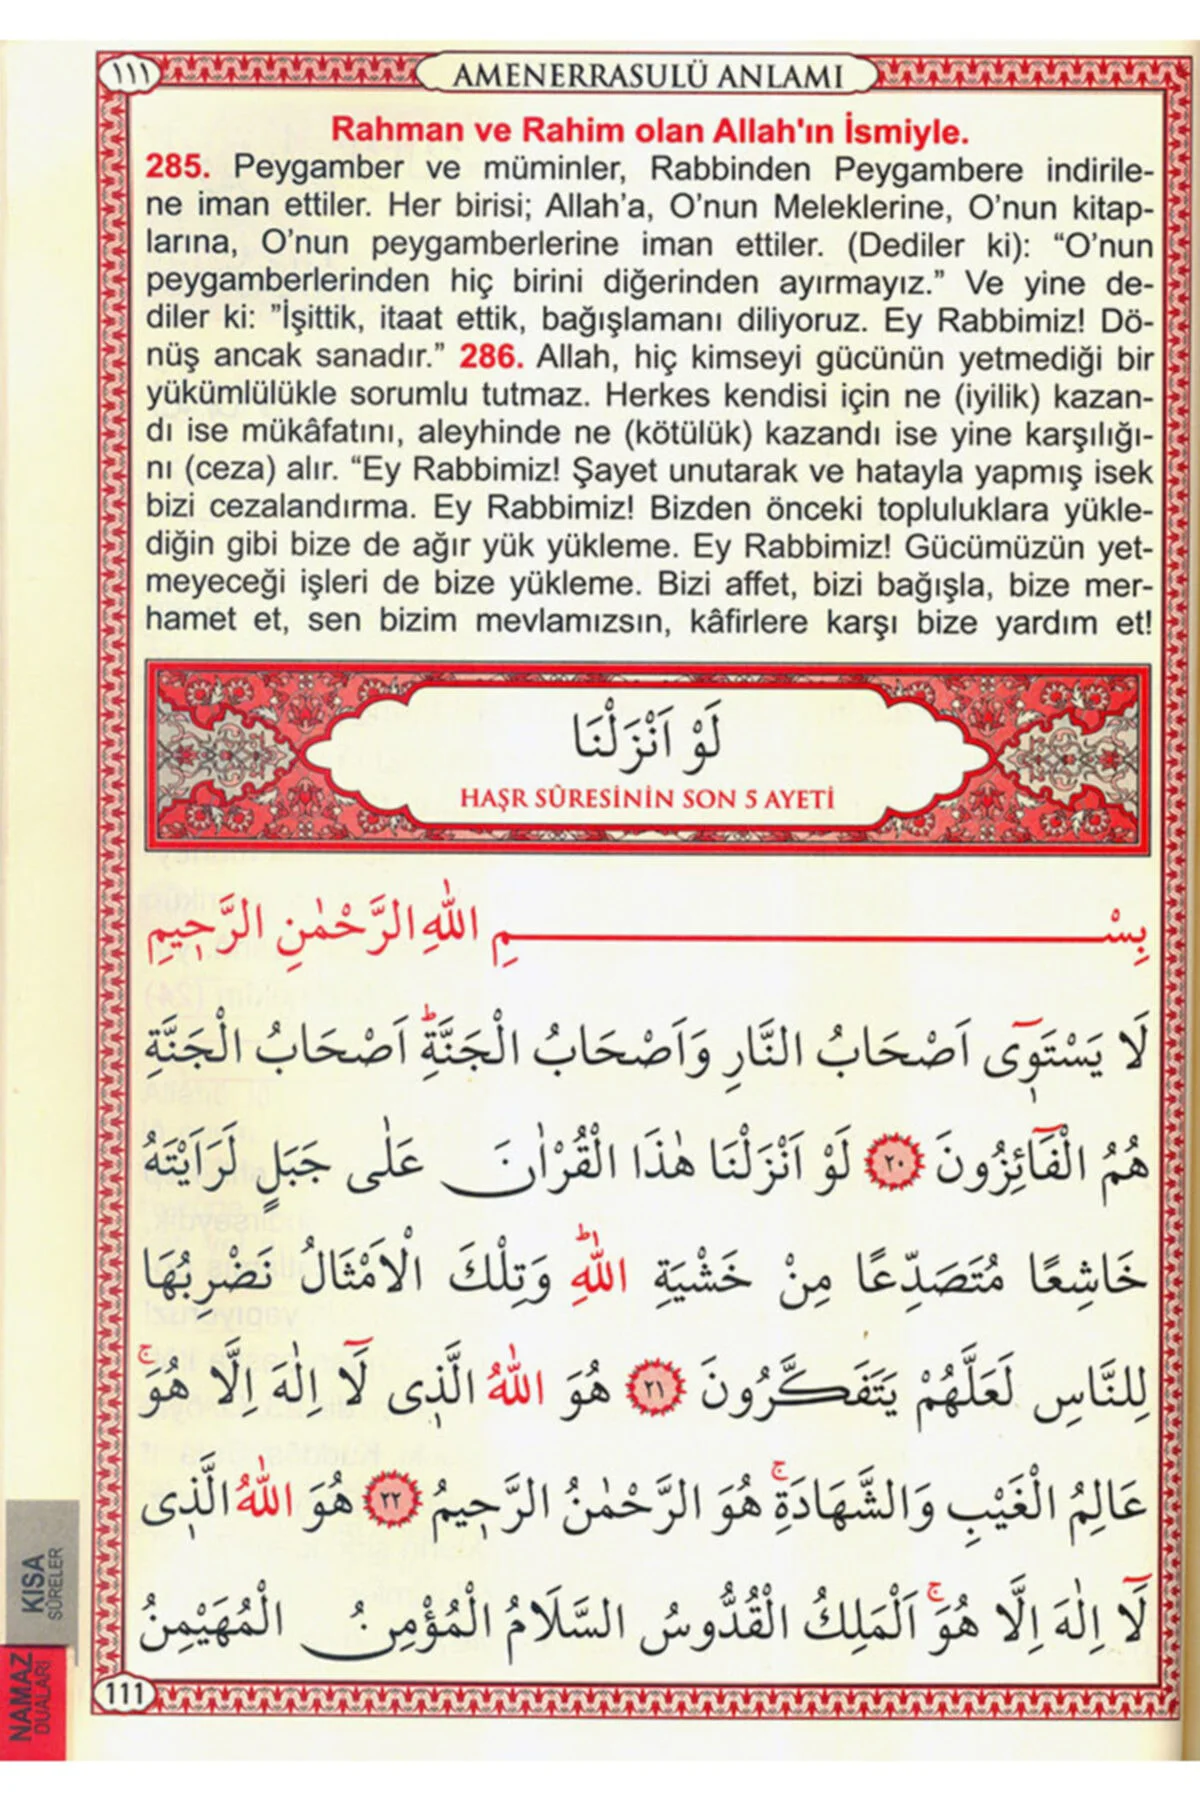 ١١١
AMENERRASULÜ ANLAMI
Rahman ve Rahim olan Allah'ın İsmiyle.
285. Peygamber ve müminler, Rabbinden Peygambere indirile-
ne iman ettiler. Her birisi; Allah’a, O’nun Meleklerine, O’nun kitap-
larına, O’nun peygamberlerine iman ettiler. (Dediler ki): “O’nun
peygamberlerinden hiç birini diğerinden ayırmayız.” Ve yine de-
diler ki: ”İşittik, itaat ettik, bağışlamanı diliyoruz. Ey Rabbimiz! Dö-
nüş ancak sanadır.” 286. Allah, hiç kimseyi gücünün yetmediği bir
yükümlülükle sorumlu tutmaz. Herkes kendisi için ne (iyilik) kazan-
dı ise mükâfatını, aleyhinde ne (kötülük) kazandı ise yine karşılığı-
nı (ceza) alır. “Ey Rabbimiz! Şayet unutarak ve hatayla yapmış isek
bizi cezalandırma. Ey Rabbimiz! Bizden önceki topluluklara yükle-
diğin gibi bize de ağır yük yükleme. Ey Rabbimiz! Gücümüzün yet-
meyeceği işleri de bize yükleme. Bizi affet, bizi bağışla, bize mer-
hamet et, sen bizim mevlamızsın, kâfirlere karşı bize yardım et!
لَوْ اَنْزَلْنَا
HAŞR SÛRESİNİN SON 5 AYETİ
بِسْمِ اللّٰهِ الرَّحْمٰنِ الرَّح۪يمِ
لَا يَسْتَو۪ٓى اَصْحَابُ النَّارِ وَاَصْحَابُ الْجَنَّةِۜ اَصْحَابُ الْجَنَّةِ
هُمُ الْفَٓائِزُونَ ﴿٢٠﴾ لَوْ اَنْزَلْنَا هٰذَا الْقُرْاٰنَ عَلٰى جَبَلٍ لَرَاَيْتَهُ
خَاشِعًا مُتَصَدِّعًا مِنْ خَشْيَةِ اللّٰهِۜ وَتِلْكَ الْاَمْثَالُ نَضْرِبُهَا
لِلنَّاسِ لَعَلَّهُمْ يَتَفَكَّرُونَ ﴿٢١﴾ هُوَ اللّٰهُ الَّذ۪ى لَٓا اِلٰهَ اِلَّا هُوَۚ
عَالِمُ الْغَيْبِ وَالشَّهَادَةِۚ هُوَ الرَّحْمٰنُ الرَّح۪يمُ ﴿٢٢﴾ هُوَ اللّٰهُ الَّذ۪ى
لَٓا اِلٰهَ اِلَّا هُوَۚ اَلْمَلِكُ الْقُدُّوسُ السَّلَامُ الْمُؤْمِنُ الْمُهَيْمِنُ
111
KISA
SÛRELER
NAMAZ
DUALARI